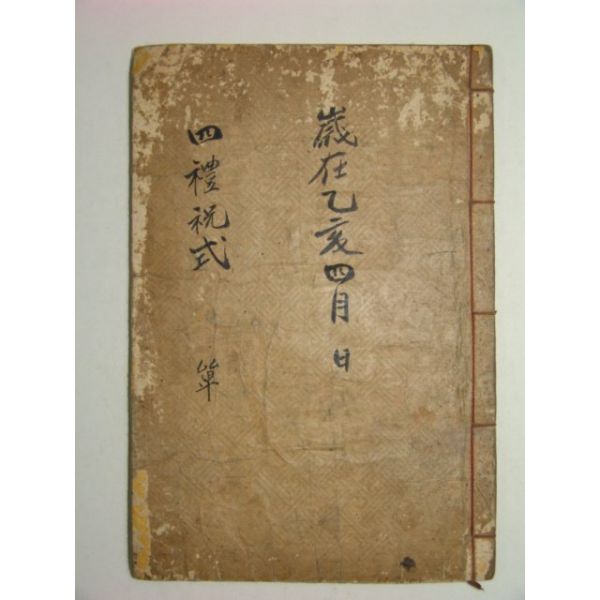 歲在乙亥四月 日
四禮祝式 單